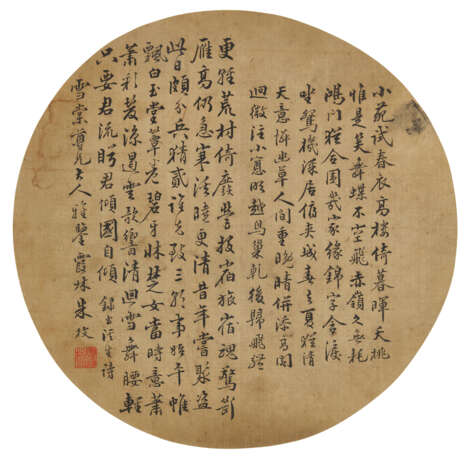 小苑試春衣高樓倚暮暉夭桃
惟是笑舞蝶不空飛赤嶺久無耗
鴻門猶合圍幾家緣錦字含淚
坐鴛機深居俯夾城春去夏猶清
天意憐幽草人間重晚晴併添高閣
迥微注小窓明越鳥巢乾後歸飛體
更輕荒村倚廢營投宿旅魂驚斷
雁高仍急寒溪曉更清昔年嘗聚盜
此日頗分兵猜貳誰先致三朝事始平帷
飄白玉堂簟卷碧牙牀楚女當時意蕭
蕭髮彩涼遏雲歌響清迴雪舞腰輕
只要君流盻君傾國自傾 錄玉谿生詩
雪棠尊兄大人雅鑒 朱枚